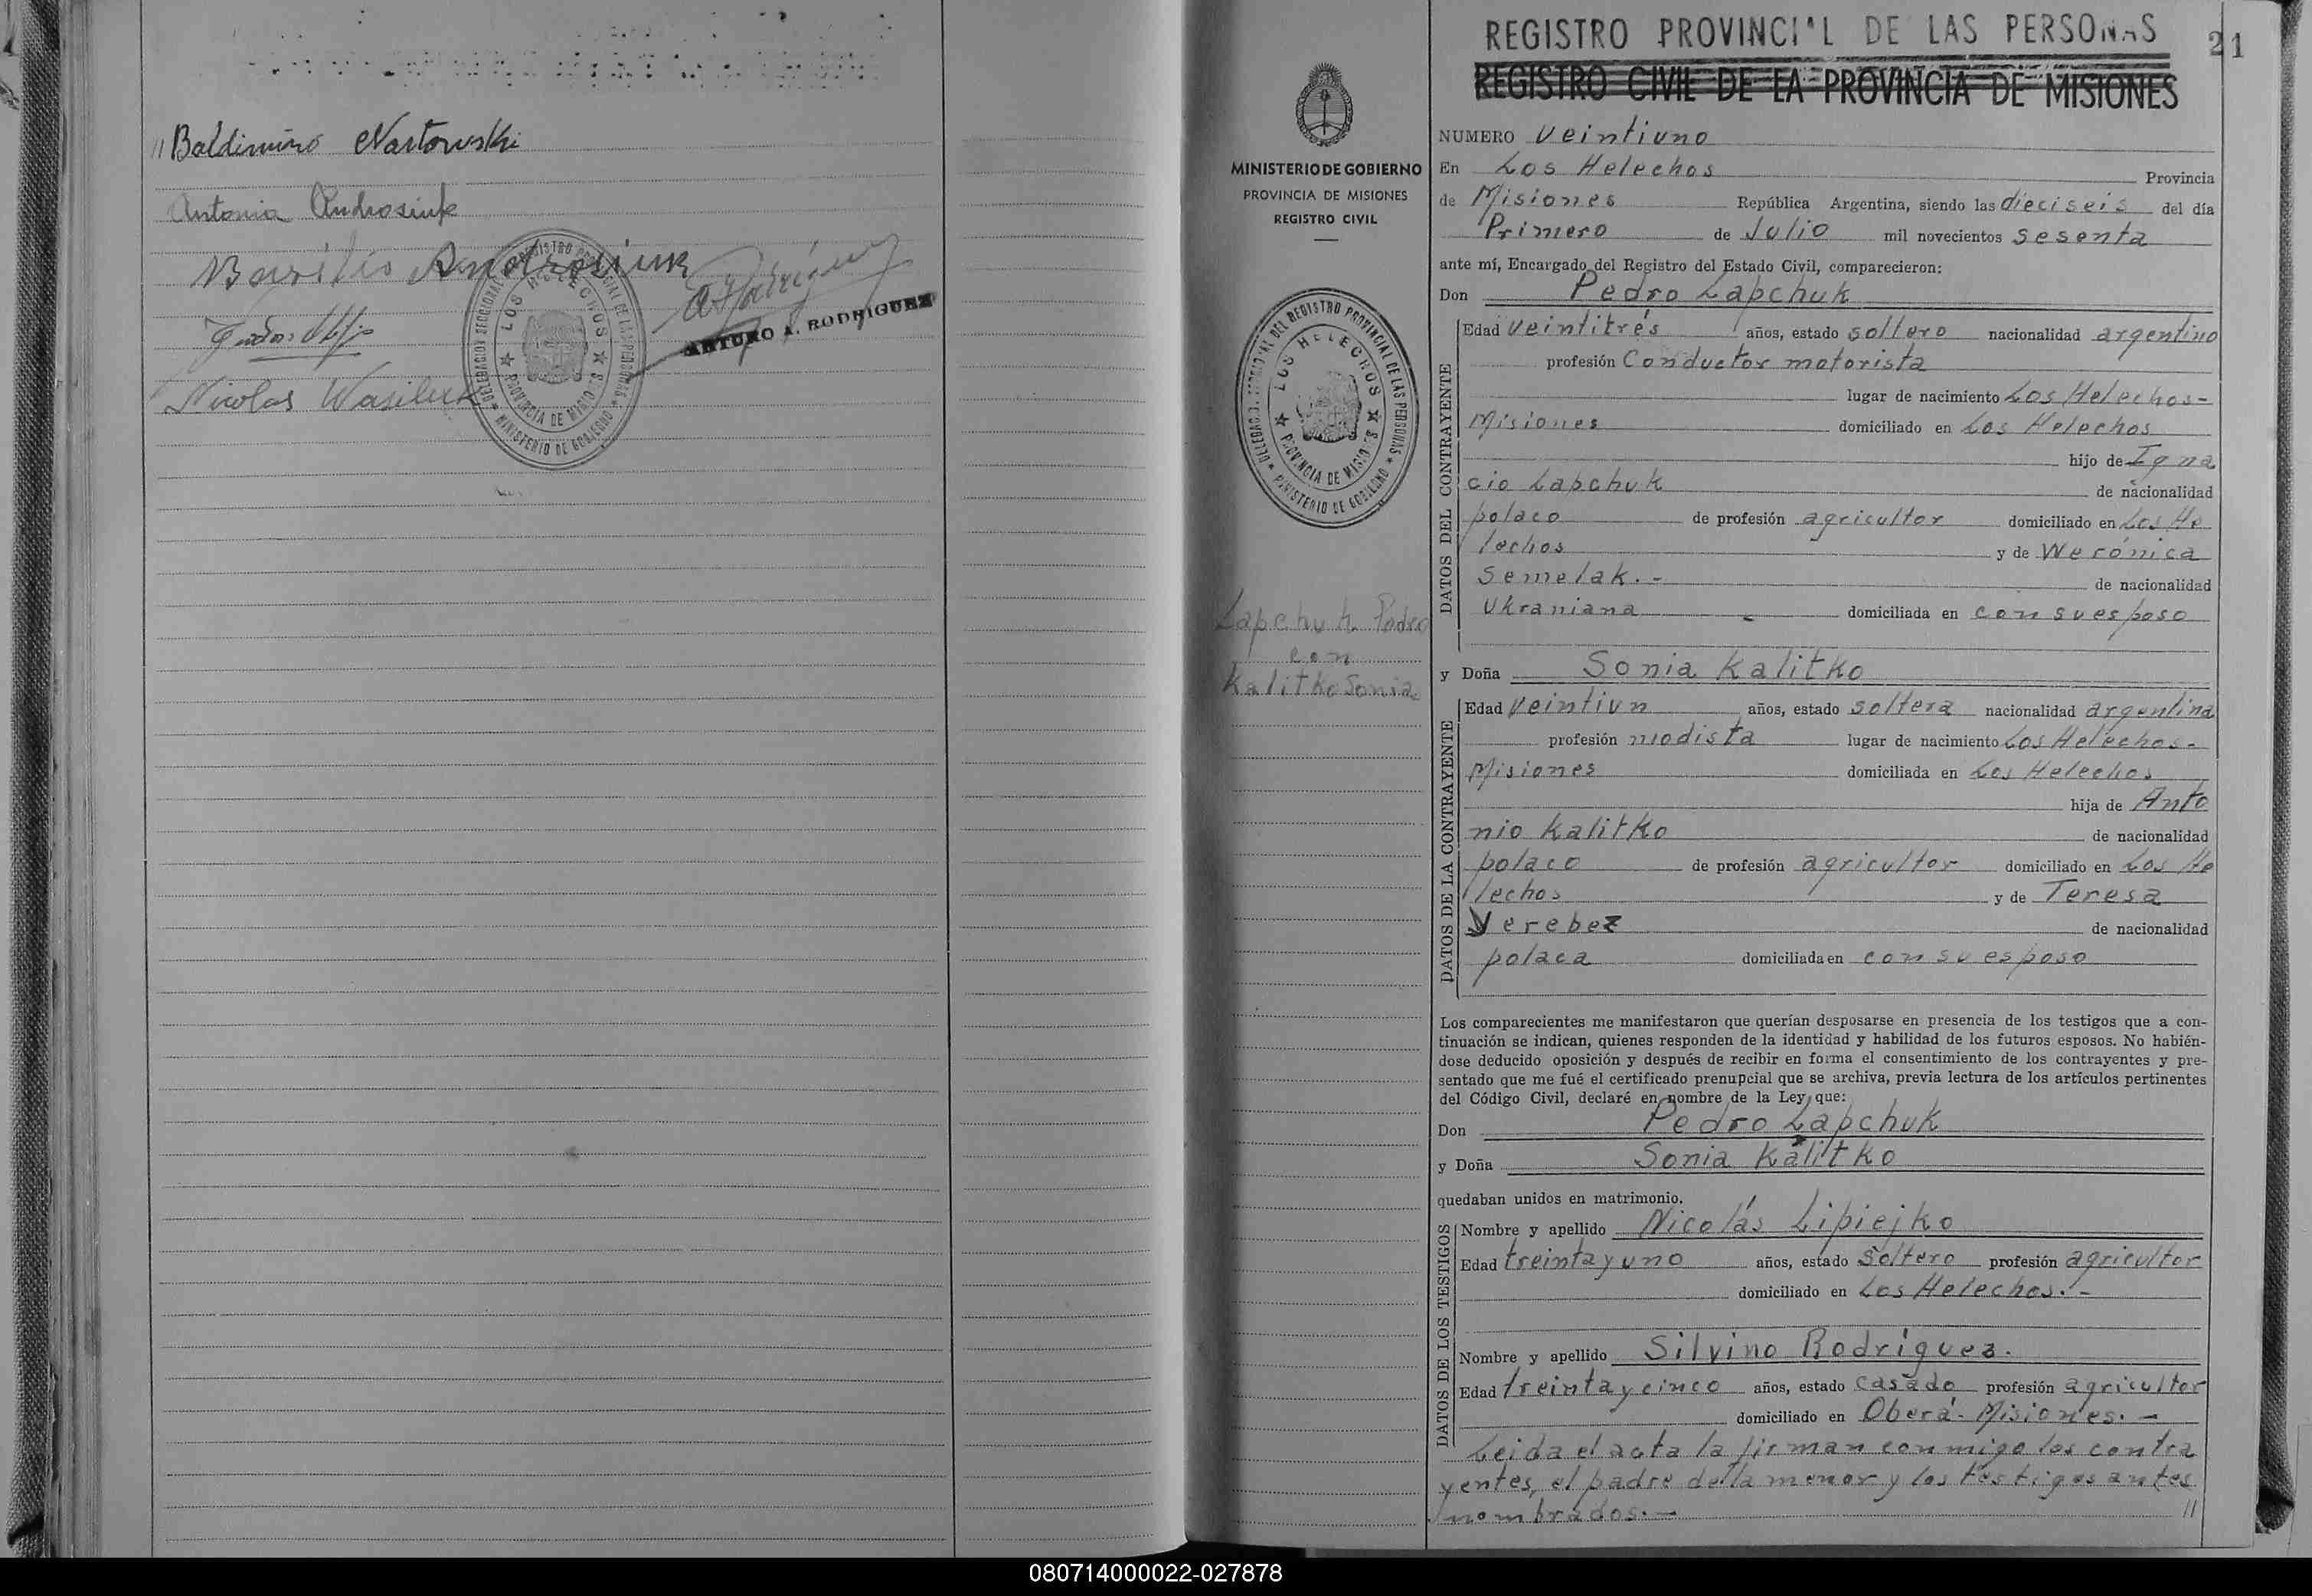 // Baldimiro Nartowski
Antonia Androsiuk
Basilio Androsiuk
ARTURO A. RODRIGUEZ
Nicolas Wasiluk
DELEGACION SECCIONAL DEL REGISTRO PROVINCIAL DE LAS PERSONAS
LOS HELECHOS
PROVINCIA DE MISIONES
MINISTERIO DE GOBIERNO
MINISTERIO DE GOBIERNO
PROVINCIA DE MISIONES
REGISTRO CIVIL
REGISTRO PROVINCIAL DE LAS PERSONAS
LOS HELECHOS
PROVINCIA DE MISIONES
MINISTERIO DE GOBIERNO
Lapchuk Pedro
con
Kalitko Sonia
REGISTRO PROVINCIAL DE LAS PERSONAS
21
REGISTRO CIVIL DE LA PROVINCIA DE MISIONES
NUMERO veintiuno
En Los Helechos Provincia
de Misiones República Argentina, siendo las dieciseis del día
Primero de Julio mil novecientos sesenta
ante mí, Encargado del Registro del Estado Civil, comparecieron:
Don Pedro Lapchuk
DATOS DEL CONTRAYENTE
Edad veintitrés años, estado soltero nacionalidad argentino
profesión Conductor motorista
lugar de nacimiento Los Helechos-
Misiones domiciliado en Los Helechos
hijo de Igna
cio Lapchuk de nacionalidad
polaco de profesión agricultor domiciliado en Los He
lechos y de Werónica
Semelak.- de nacionalidad
Ukraniana domiciliada en con su esposo
y Doña Sonia Kalitko
DATOS DE LA CONTRAYENTE
Edad veintiun años, estado soltera nacionalidad argentina
profesión modista lugar de nacimiento Los Helechos-
Misiones domiciliada en Los Helechos
hija de Anto
nio Kalitko de nacionalidad
polaco de profesión agricultor domiciliado en Los He
lechos y de Teresa
Verebez de nacionalidad
polaca domiciliada en con su esposo
Los comparecientes me manifestaron que querían desposarse en presencia de los testigos que a con-
tinuación se indican, quienes responden de la identidad y habilidad de los futuros esposos. No habién-
dose deducido oposición y después de recibir en forma el consentimiento de los contrayentes y pre-
sentado que me fué el certificado prenupcial que se archiva, previa lectura de los artículos pertinentes
del Código Civil, declaré en nombre de la Ley que:
Don Pedro Lapchuk
y Doña Sonia Kalitko
quedaban unidos en matrimonio.
DATOS DE LOS TESTIGOS
Nombre y apellido Nicolás Lipiejko
Edad treinta y uno años, estado soltero profesión agricultor
domiciliado en Los Helechos.-
Nombre y apellido Silvino Rodríguez.
Edad treinta y cinco años, estado casado profesión agricultor
domiciliado en Oberá- Misiones.-
Leida el acta la firman conmigo los contra
yentes, el padre de la menor y los testigos antes
nombrados.- //
080714000022-027878